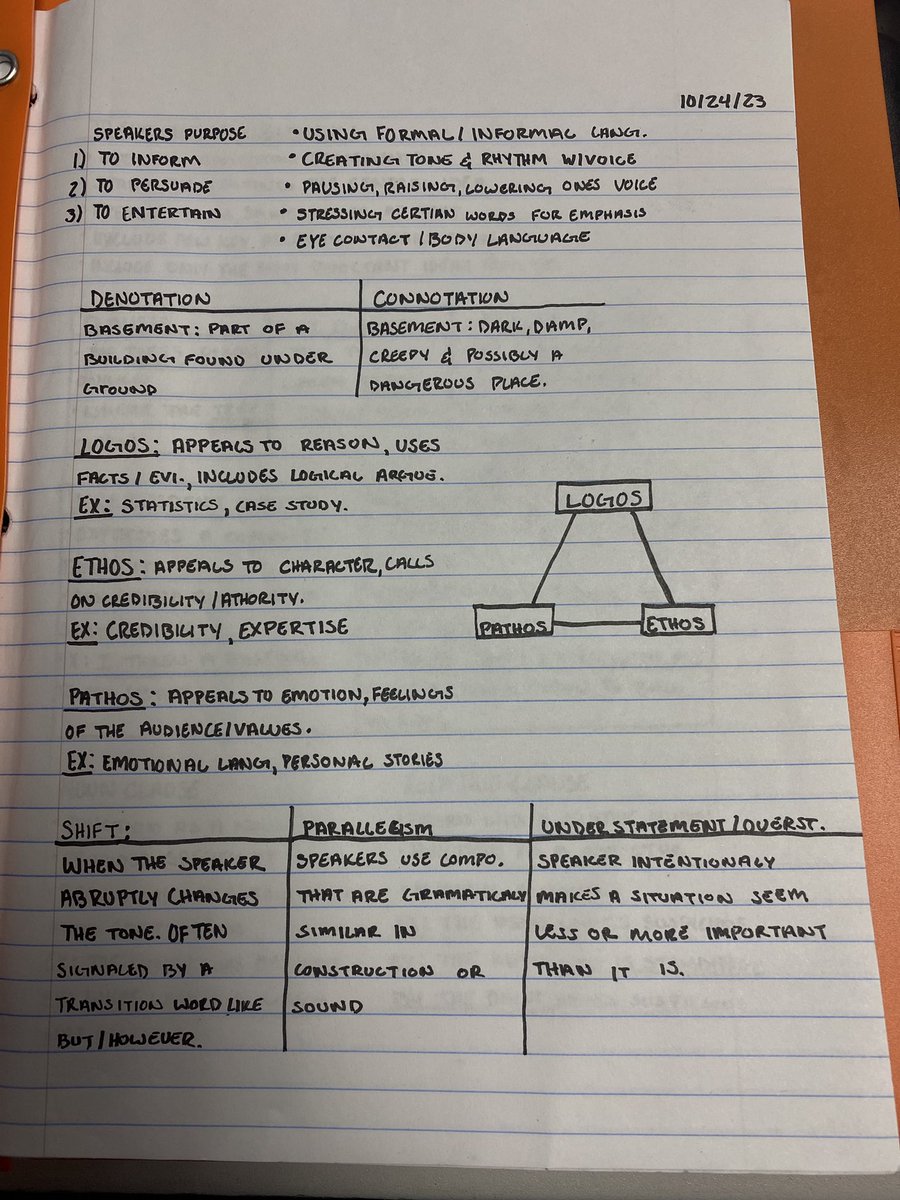 10/24/23
SPEAKERS PURPOSE
1) TO INFORM
2) TO PERSUADE
3) TO ENTERTAIN
• USING FORMAL / INFORMAL LANG.
• CREATING TONE & RHYTHM W/VOICE
• PAUSING, RAISING, LOWERING ONES VOICE
• STRESSING CERTIAN WORDS FOR EMPHASIS
• EYE CONTACT / BODY LANGUAGE
DENOTATION
BASEMENT: PART OF A
BUILDING FOUND UNDER
GROUND
CONNOTATION
BASEMENT: DARK, DAMP,
CREEPY & POSSIBLY A
DANGEROUS PLACE.
LOGOS: APPEALS TO REASON, USES
FACTS / EVI., INCLUDES LOGICAL ARGUE.
EX: STATISTICS, CASE STUDY.
ETHOS: APPEALS TO CHARACTER, CALLS
ON CREDIBILITY / ATHORITY.
EX: CREDIBILITY, EXPERTISE
PATHOS: APPEALS TO EMOTION, FEELINGS
OF THE AUDIENCE/VALUES.
EX: EMOTIONAL LANG, PERSONAL STORIES
LOGOS
PATHOS
ETHOS
SHIFT:
WHEN THE SPEAKER
ABRUPTLY CHANGES
THE TONE. OFTEN
SIGNALED BY A
TRANSITION WORD LIKE
BUT / HOWEVER.
PARALLELISM
SPEAKERS USE COMPO.
THAT ARE GRAMATICALY
SIMILAR IN
CONSTRUCTION OR
SOUND
UNDERSTATEMENT / OVERST.
SPEAKER INTENTIONALY
MAKES A SITUATION SEEM
LESS OR MORE IMPORTANT
THAN IT IS.